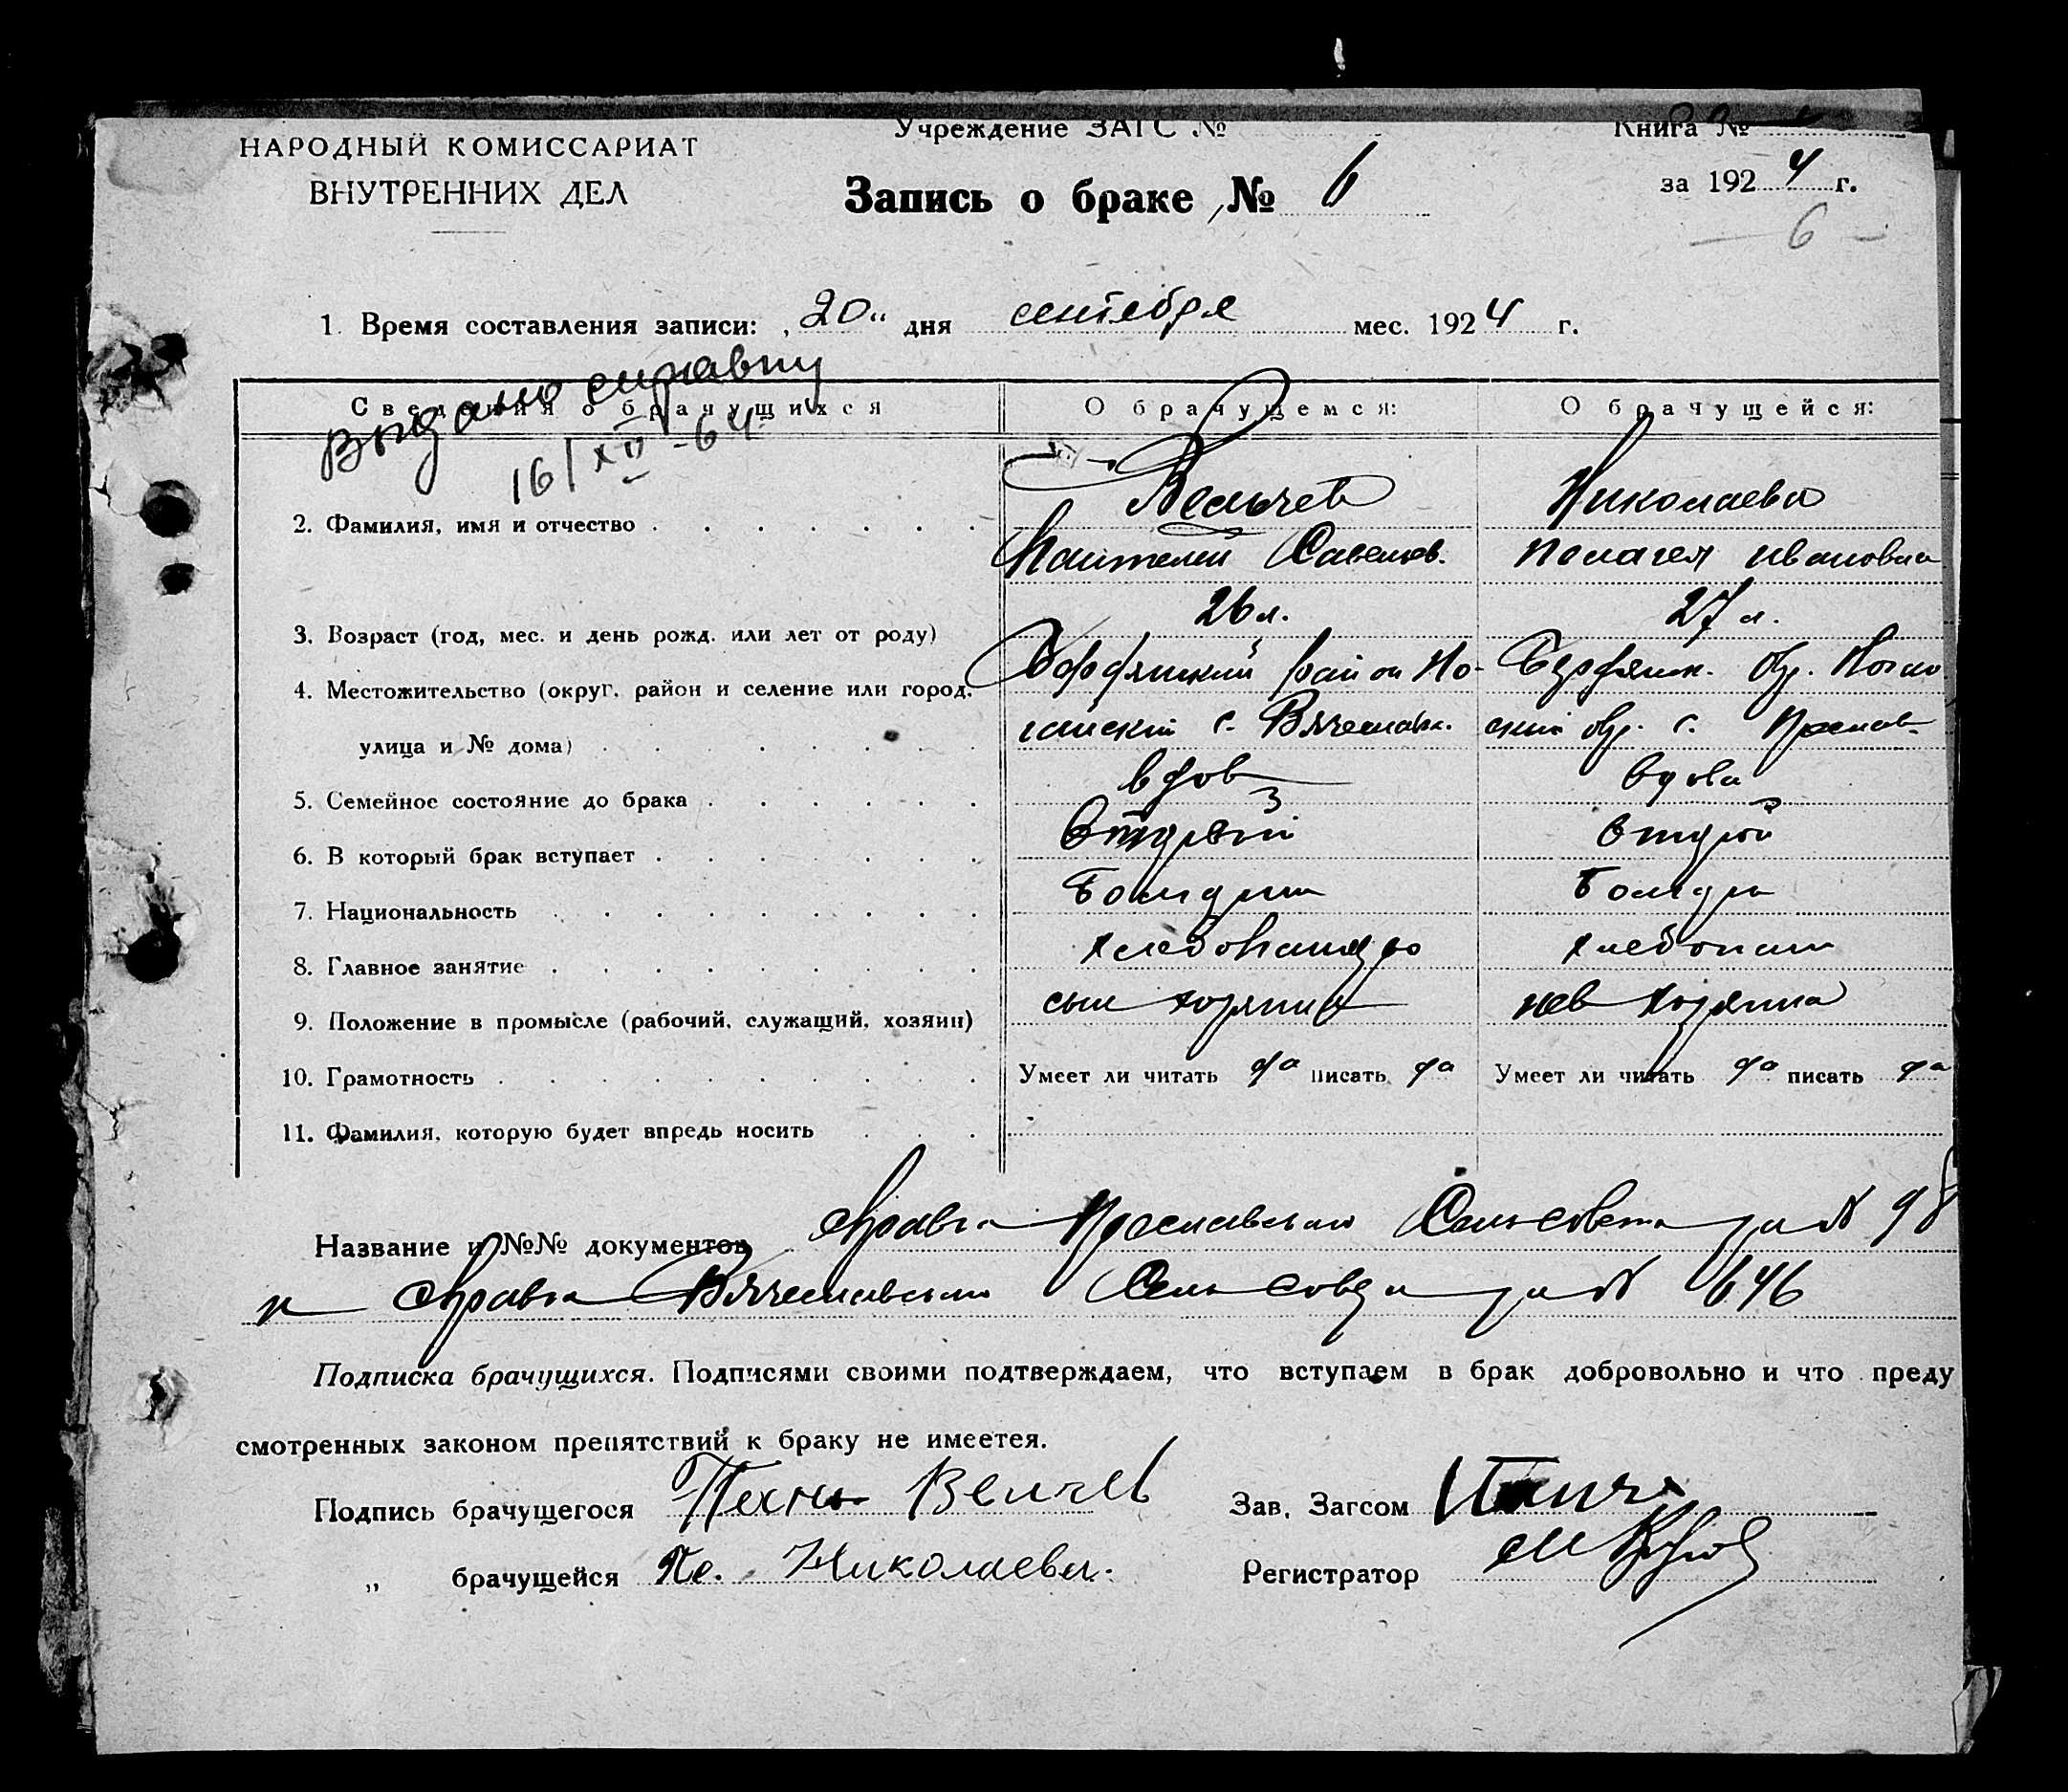 Учреждение ЗАГС №
Книга №
НАРОДНЫЙ КОМИССАРИАТ
ВНУТРЕННИХ ДЕЛ
Запись о браке № 6
за 1924 г.
— 6 —
1. Время составления записи: „20" дня сентября мес. 1924 г.
Выдано справку
16/XII-64
Сведения о брачущихся О брачущемся: О брачущейся:
Вельчев Николаева
2. Фамилия, имя и отчество
Пантелей Савельев. Пелагея Ивановна
26 л. 27 л.
3. Возраст (год, мес. и день рожд. или лет от роду)
район Но-
4. Местожительство (округ, район и селение или город,
гайский с. Вячеслав.
улица и № дома)
вдов вдова
5. Семейное состояние до брака
второй второй
6. В который брак вступает
7. Национальность
8. Главное занятие
сын хозяина хозяина
9. Положение в промысле (рабочий, служащий, хозяин)
10. Грамотность Умеет ли читать да писать да Умеет ли читать да писать да
11. Фамилия, которую будет впредь носить
Название и №№ документов Сельсовета за № 98
и Вячеславского за № 646
Подписка брачущихся. Подписями своими подтверждаем, что вступаем в брак добровольно и что преду
смотренных законом препятствий к браку не имеется.
Подпись брачущегося Велчев Зав. Загсом
„ брачущейся Пе. Николаева. Регистратор